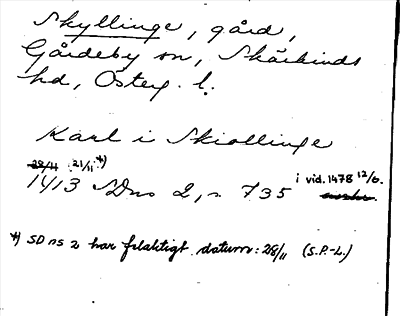 Skyllinge, gård,
Gårdeby sn, Skärkinds
hd, Österg. l.
Karl i Skiollinge
28/11 21/11 *)
1413 SDns 2, s. 735 i vid. 1478 12/6.
*) SD ns 2 har felaktigt datum: 28/11 (S.P.-L.)